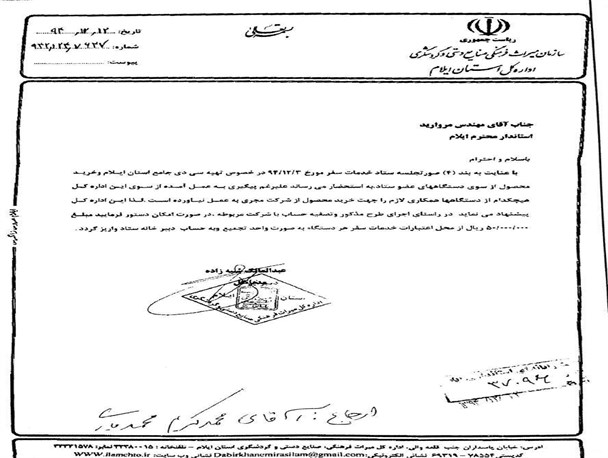 بسمه تعالی
تاریخ: ۹۴/۱۲/۱۲
شماره:
پیوست:
ریاست جمهوری
سازمان میراث فرهنگی، صنایع دستی و گردشگری
اداره کل استان ایلام
جناب آقای مهندس مروارید
استاندار محترم ایلام
باسلام و احترام
با عنایت به بند (۴) صورتجلسه ستاد خدمات سفر مورخ ۹۴/۱۲/۳ در خصوص تهیه سی دی جامع استان ایلام وخرید
محصول از سوی دستگاههای عضو ستاد،به استحضار می رساند علیرغم پیگیری به عمل آمده از سوی این اداره کل
هیچکدام از دستگاهها همکاری لازم را جهت خرید محصول از شرکت مجری به عمل نیاورده است. لذا این اداره کل
پیشنهاد می نماید، در راستای اجرای طرح مذکور وتصفیه حساب با شرکت مربوطه ،در صورت امکان دستور فرمایید مبلغ
۵۰/۰۰۰/۰۰۰ ریال از محل اعتبارات خدمات سفر هر دستگاه به صورت واحد تجمیع وبه حساب دبیر خانه ستاد واریز گردد.
عبدالمالک شنبه زاده
مدیرکل
۳۷۰۹۴
ارجاع : آقای محمد کرم محمدیاری
آدرس: خیابان پاسداران جنب قلعه والی، اداره کل میراث فرهنگی، صنایع دستی و گردشگری استان ایلام - تلفنخانه : ۳۳۳۸۰۰۱۵ نمابر: ۳۳۳۳۱۵۷۸
کدپستی ۷۸۵۵۴-۶۹۳۱۹ نشانی الکترونیکی: Dabirkhanemirasilam@gmail.com نشانی وب سایت: WWW.ilamchto.ir